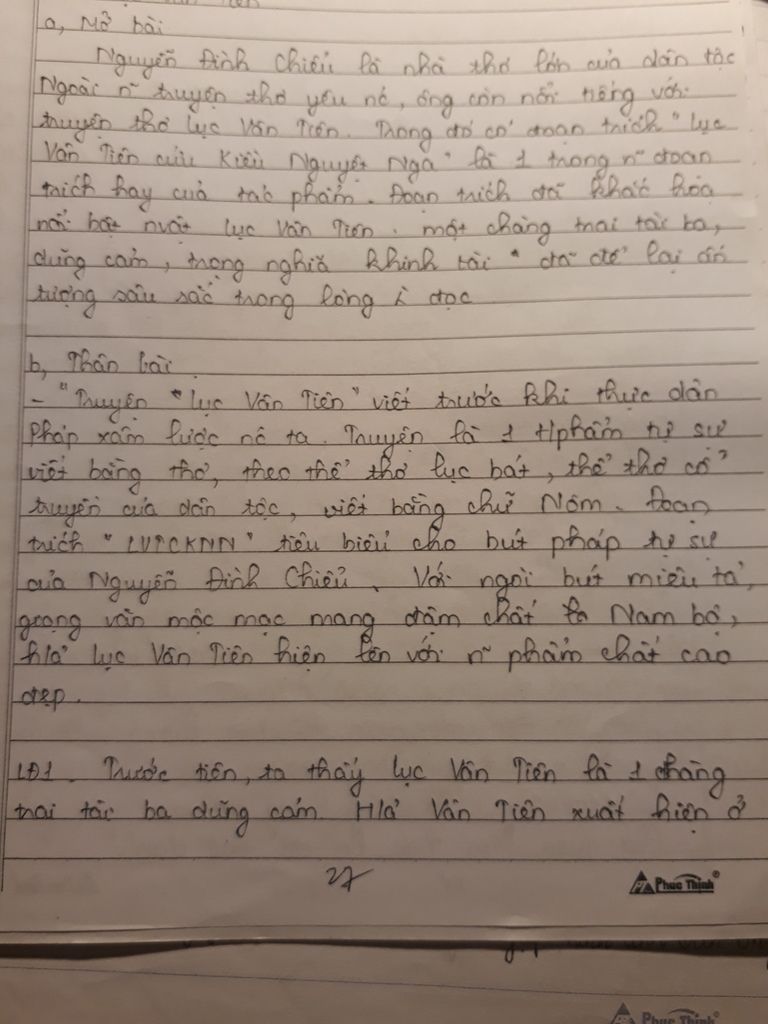 a, Mở bài
Nguyễn Đình Chiểu là nhà thơ lớn của dân tộc
Ngoài n~ truyện thơ yêu nc, ông còn nổi tiếng với
truyện thơ Lục Vân Tiên. Trong đó có đoạn trích "Lục
Vân Tiên cứu Kiều Nguyệt Nga" là 1 trong n~ đoạn
trích hay của tác phẩm. Đoạn trích đã khắc họa
nổi bật nvật Lục Vân Tiên. một chàng trai tài ba,
dũng cảm, trọng nghĩa khinh tài " đã để lại ấn
tượng sâu sắc trong lòng đọc
b, Thân bài
- "Truyện "Lục Vân Tiên" viết trước khi thực dân
Pháp xâm lược nc ta. Truyện là 1 t/phẩm tự sự
viết bằng thơ, theo thể thơ lục bát, thể thơ cổ
truyền của dân tộc, viết bằng chữ Nôm. Đoạn
trích "LVTCKNN" tiêu biểu cho bút pháp tự sự
của Nguyễn Đình Chiểu. Với ngòi bút miêu tả,
giọng văn mộc mạc mang đậm chất Nam bộ,
h/ả Lục Vân Tiên hiện lên với n~ phẩm chất cao
đẹp.
LĐ1. Trước tiên, ta thấy Lục Vân Tiên là 1 chàng
trai tài ba dũng cảm. H/ả Vân Tiên xuất hiện ở
27
Phuc Thinh®
Phuc Thinh